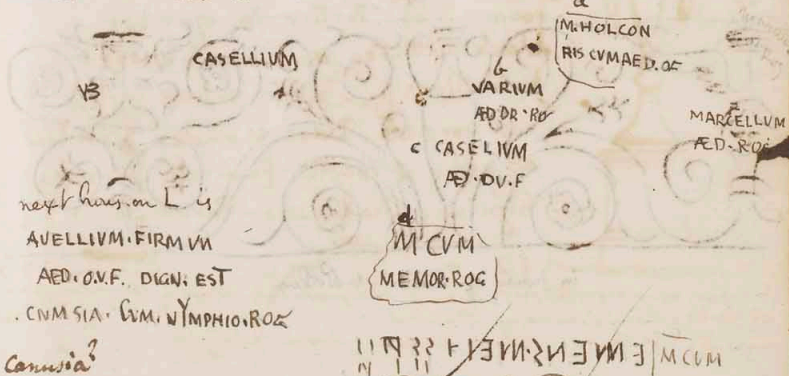 a
M. HOLCON
RIS CVM AED. OF
CASELLIUM
VB
b
VARIUM
ÆD DR·RO
MARCELLUM
ÆD·ROG
c CASELIUM
ÆD·DV.F
next house on L is
AVELLIVM·FIRMVM
AED·O.V.F. DIGN. EST
CNMSIA· CVM·NYMPHIO·ROG
d
M CVM
MEMOR·ROG
M CVM
Canusia?